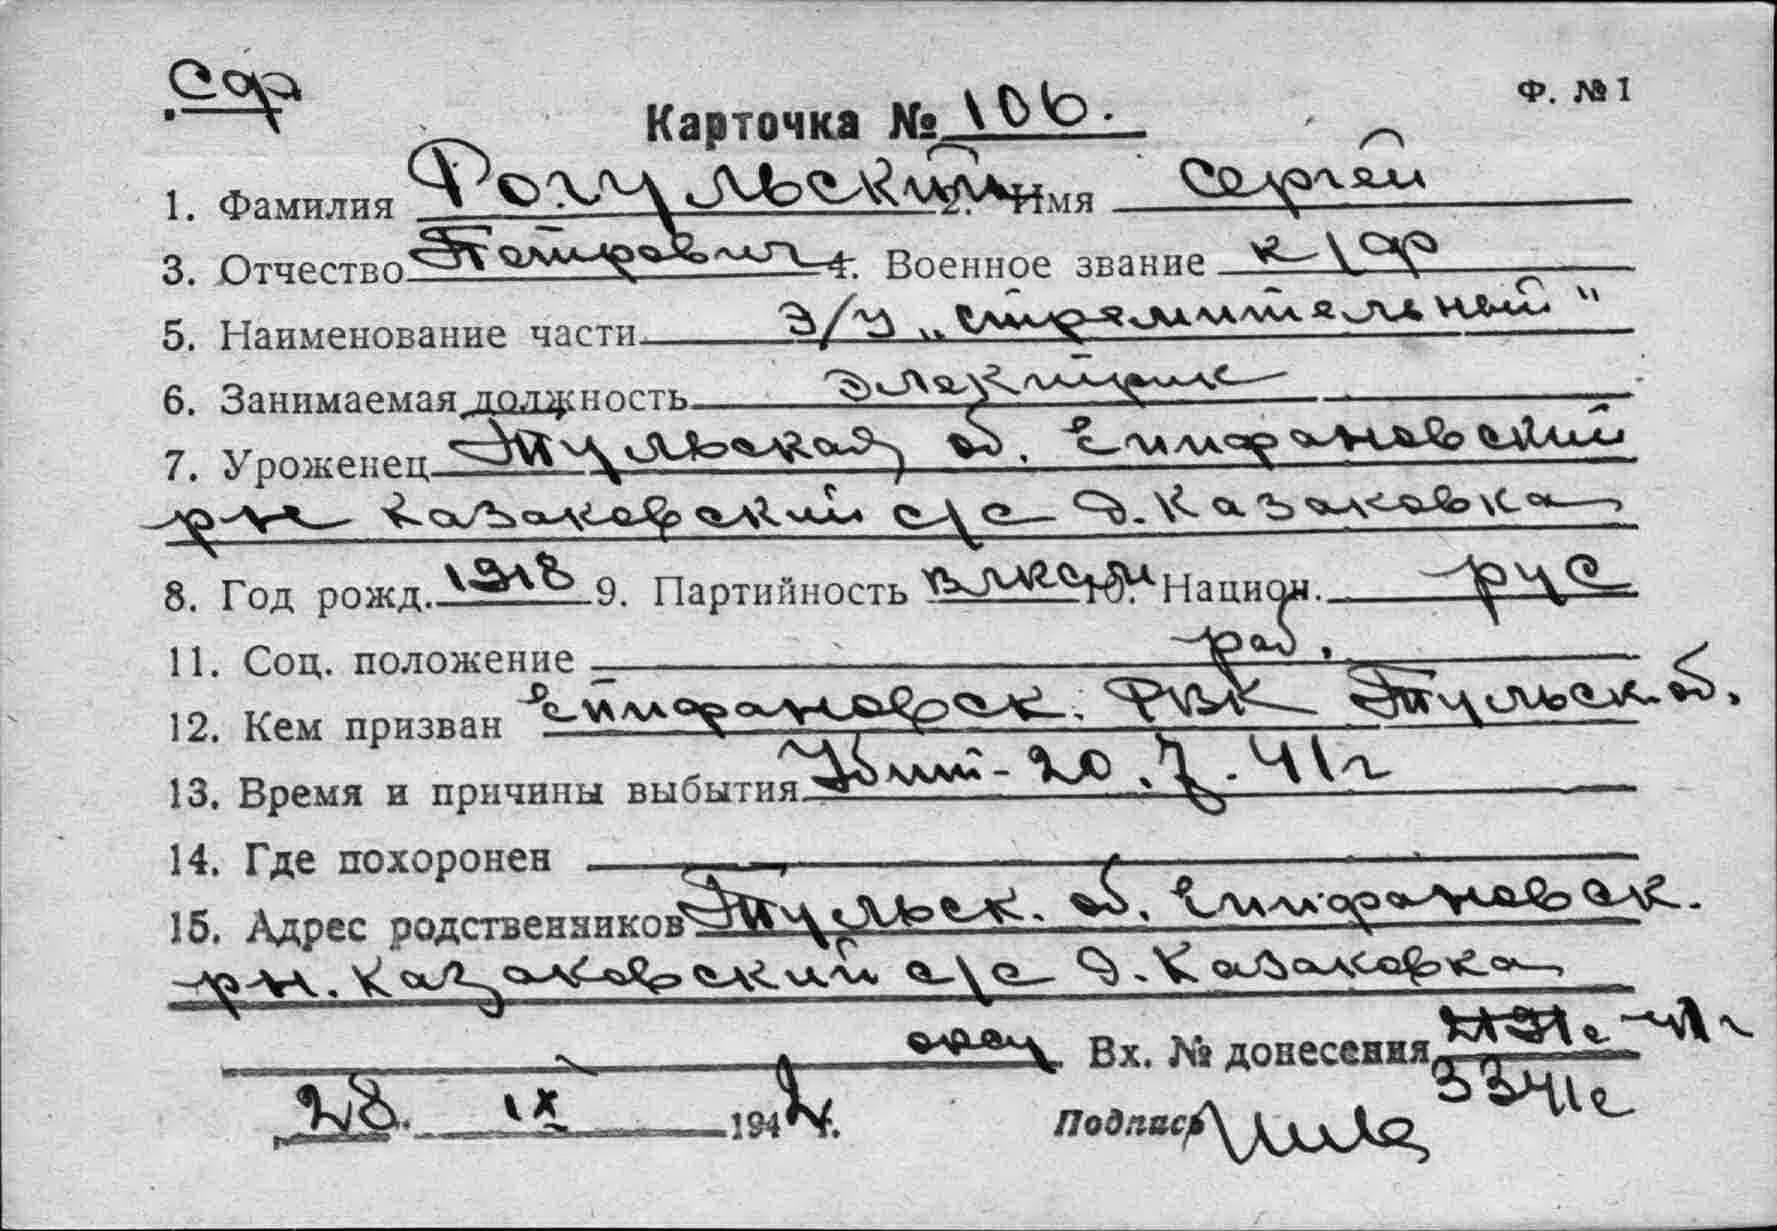 Сдр Ф. №1
Карточка № 106.
1. Фамилия Рогульский 2. Имя Сергей
3. Отчество Петрович 4. Военное звание к/ф
5. Наименование части Э/У „Стремительный"
6. Занимаемая должность электрик
7. Уроженец Тульская об. Епифановский
рне Казаковский с/с д. Казаковка
8. Год рожд. 1918 9. Партийность ВЛКСМ 10. Национ. рус
11. Соц. положение раб.
12. Кем призван Епифановск. РВК Тульск. об.
13. Время и причины выбытия Убит - 20.7.41 г
14. Где похоронен —
15. Адрес родственников Тульск. об. Епифановск.
рн. Казаковский с/с д. Казаковка
Вх. № донесения
3341с
28. IX 1942 г.
Подпись